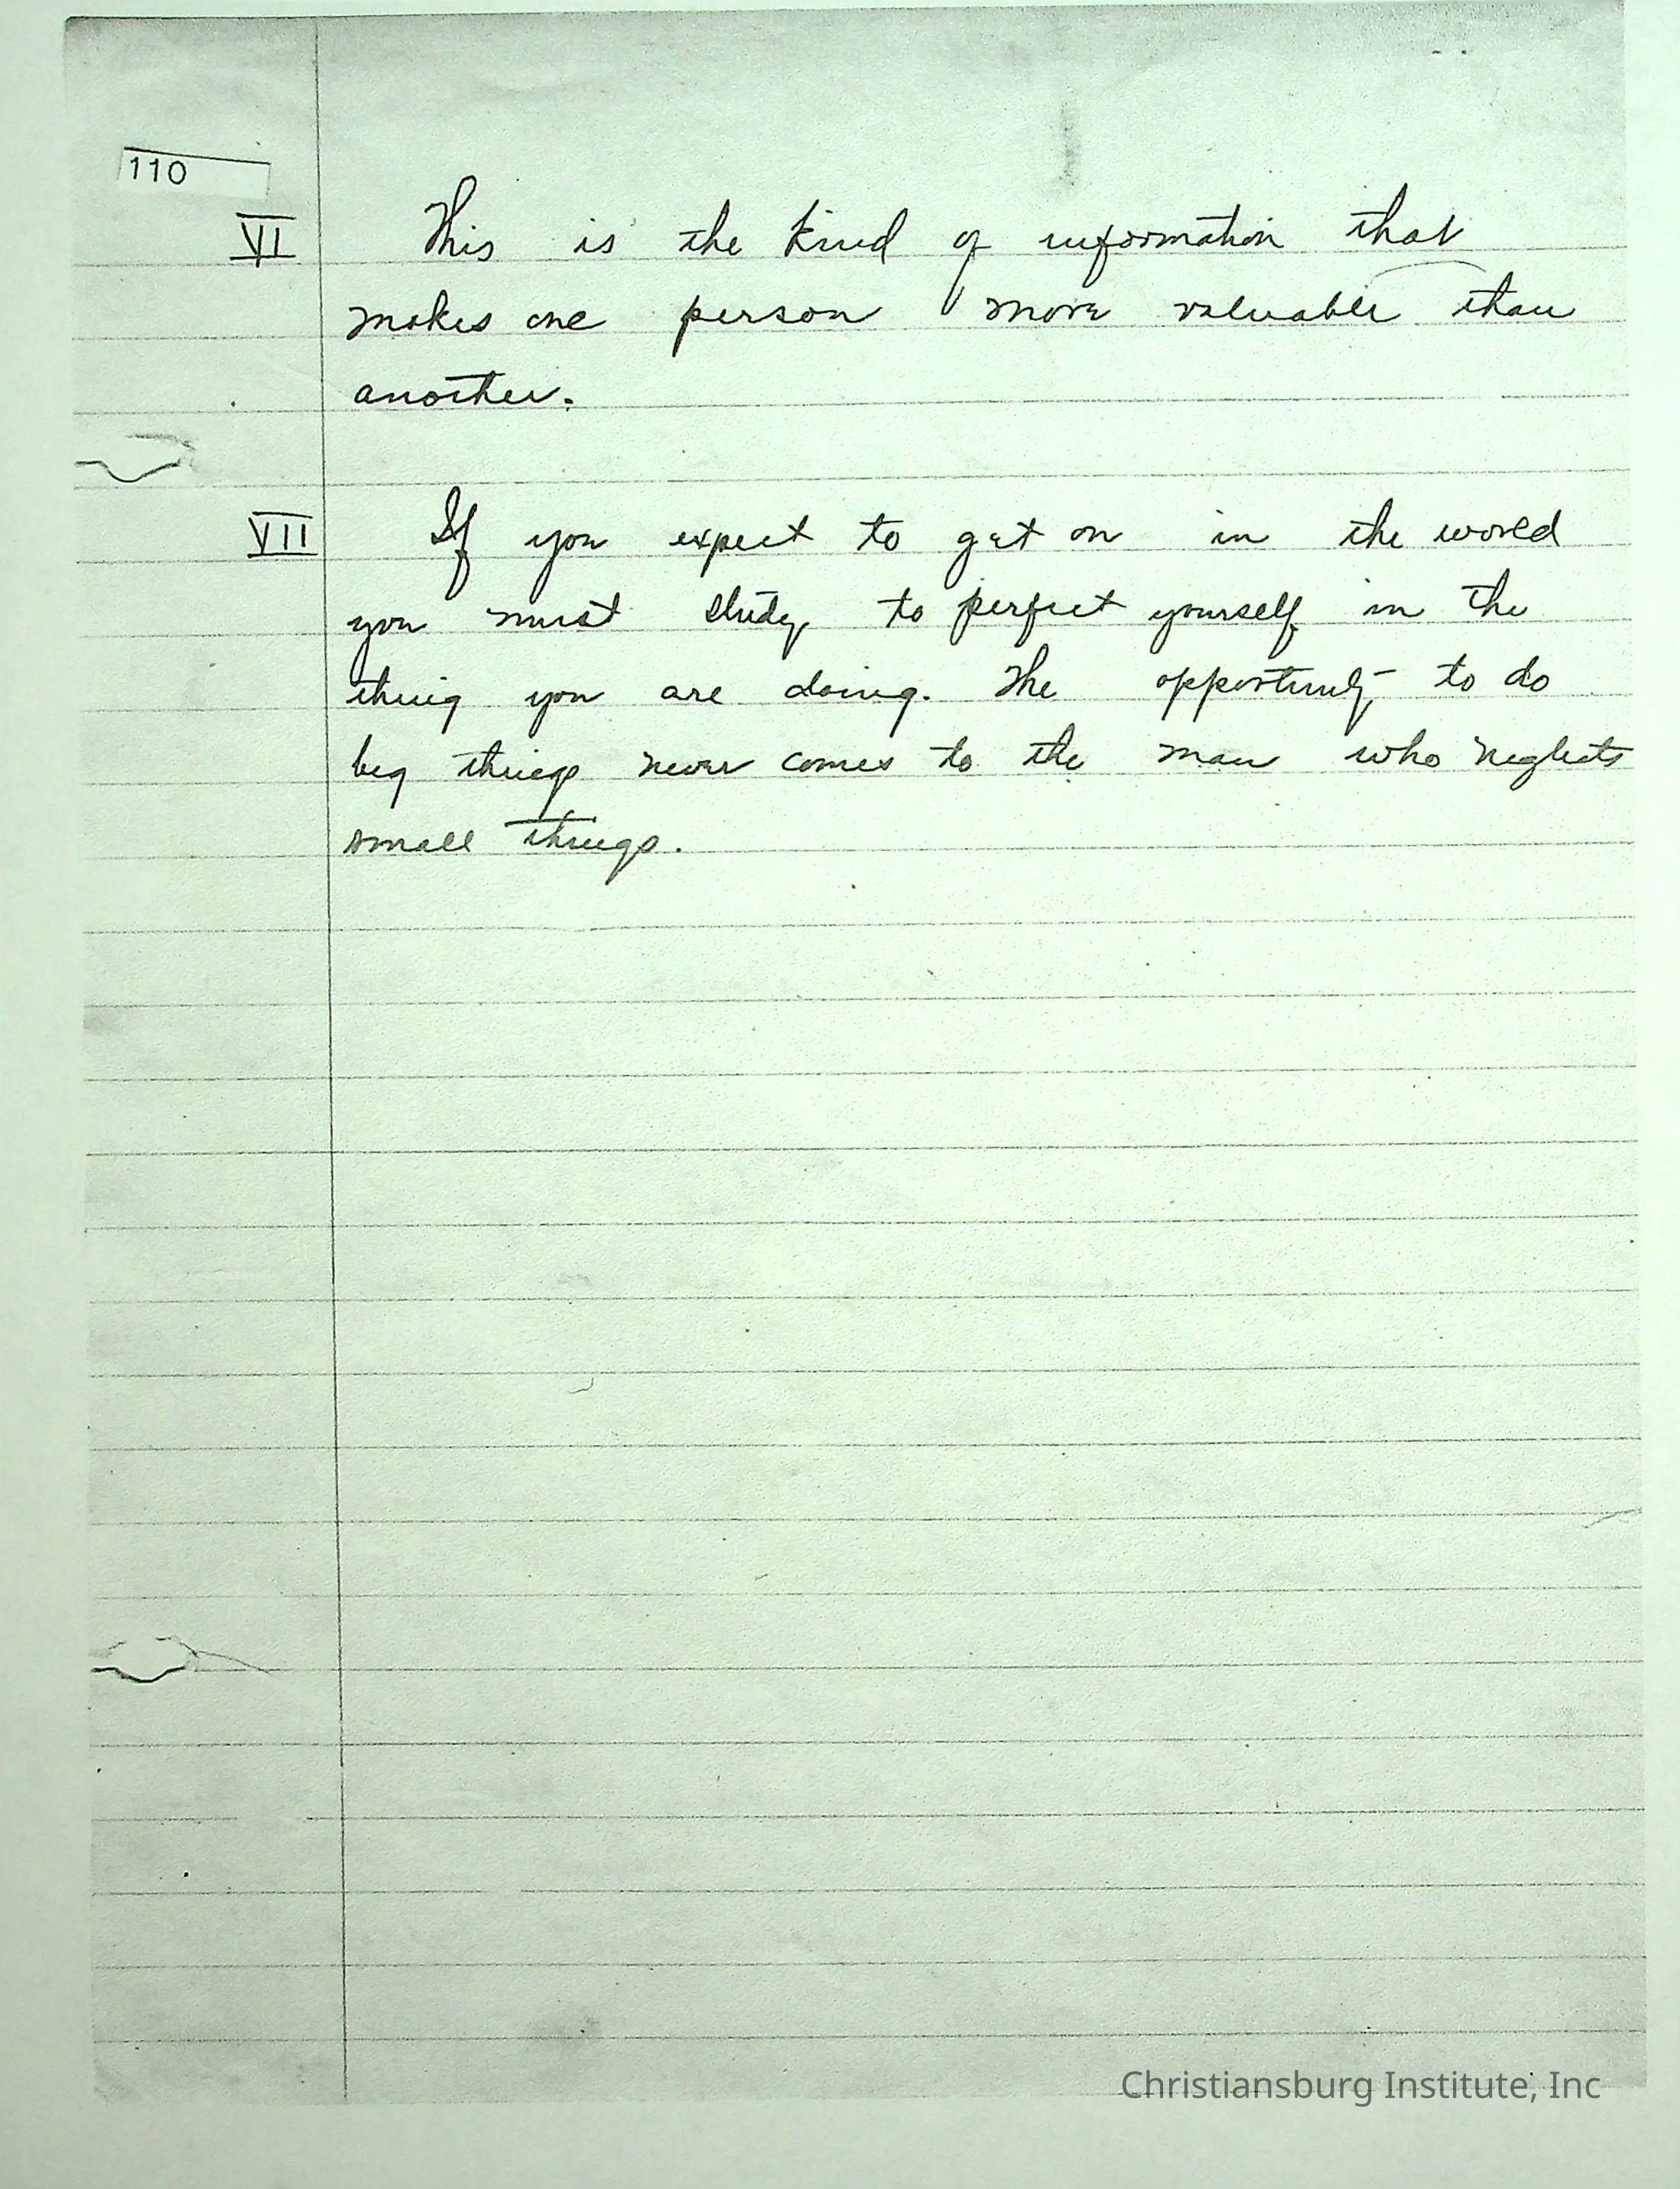 110
VI This is the kind of information that
makes one person more valuable than
another.
VII If you expect to get on in the world
you must study to perfect yourself in the
thing you are doing. The opportunity to do
big things never comes to the man who neglects
small things.
Christiansburg Institute, Inc